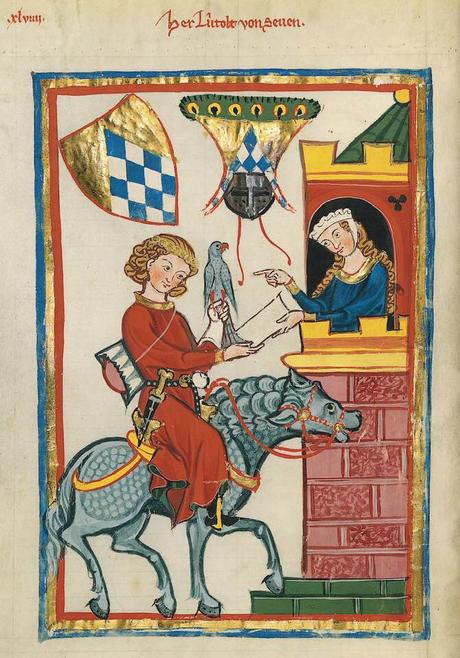 xlviij.
Her Lútolt von Seven.